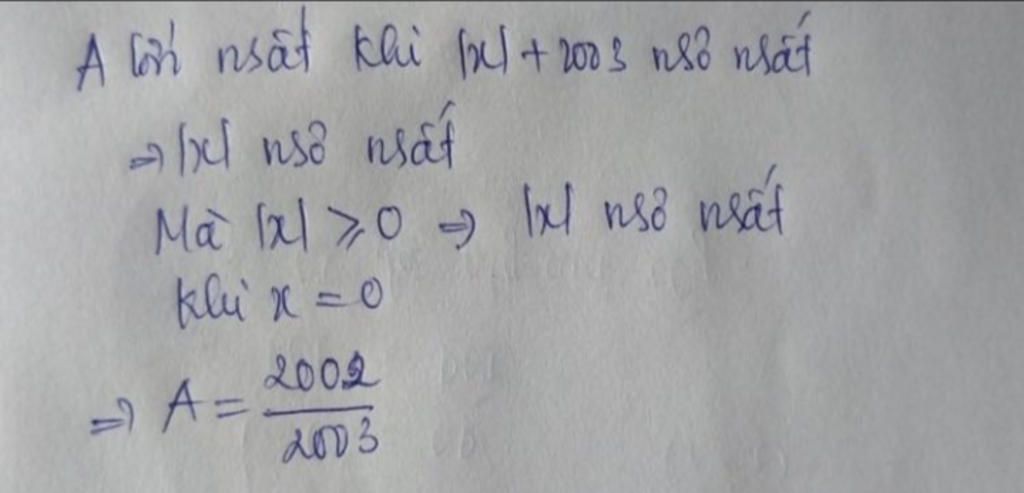 A lớn nhất khi |x| + 2003 nhỏ nhất
⇒ |x| nhỏ nhất
Mà |x| ⩾ 0 ⇒ |x| nhỏ nhất
khi x = 0
⇒ A = 2002/2003